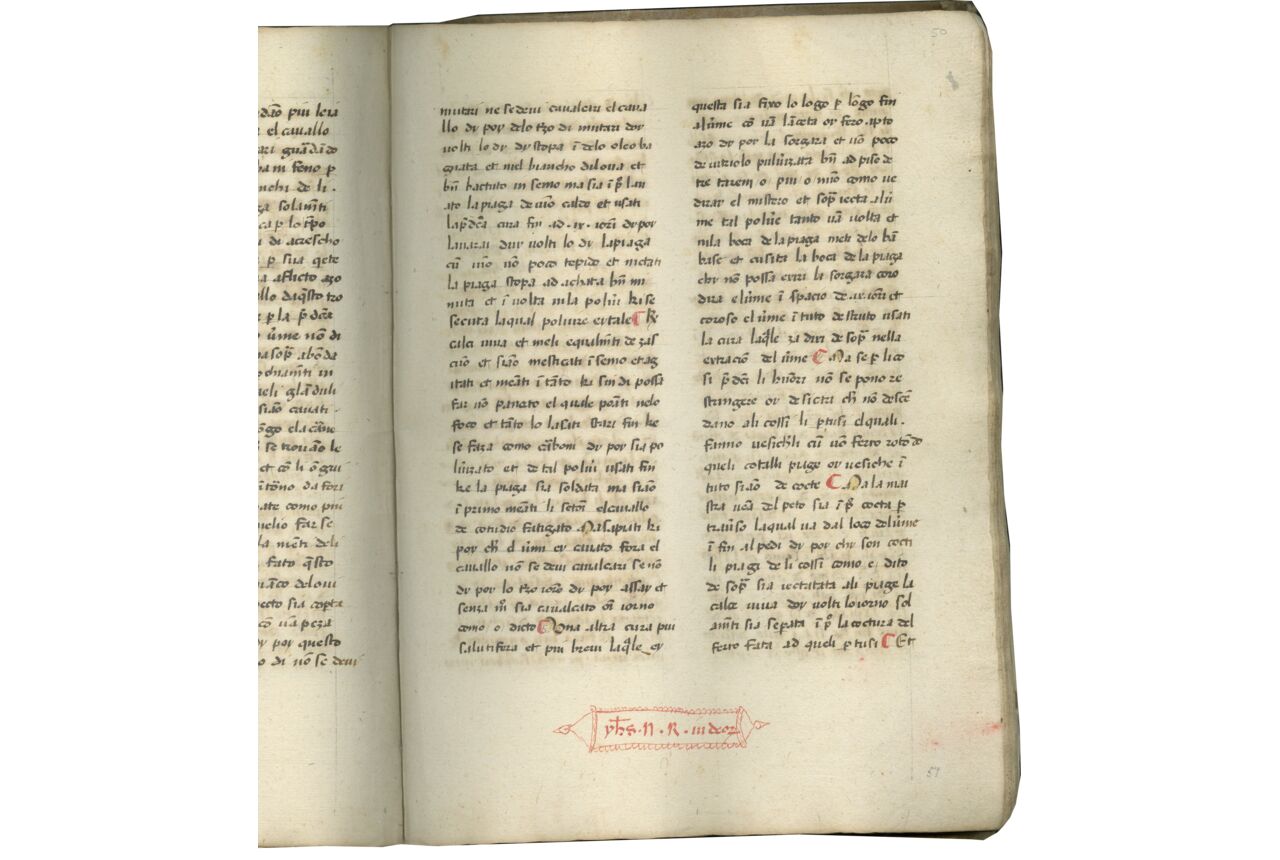 dāo piu leia
el cauallo
tari guādādo
ba in feno ꝑ
nchi de li .
ga solamti
ca ꝑ lo tꝑo
di acrescho
ꝑ sua qete
a aflicto azo
llo daq̄sto tro
ꝑ la p̄dca
ume nō di
a sop̄ abōda
ochiamti in
eli glāduli
siāo cauati .
ōgo ela cāne
se trouāo le
et cō li ōgui
ītōno da fori
ate como piu
elio far se
la mēti deli
fato q̄sto
iāco deloui
ecto sia copta
cō ua peza
r por questo
o di nō se deui
mutari ne se deui caualcari el caua
llo dr por delo tzo di mutari dor
uolti lo dr dr stopa ī delo oleo ba
gnata et mel biancho dil oua et
bn̄ bactuto in semo ma sia ī p̄ lau
ato la piaga de uīo caldo et usati
la p̄dca cura fin ad .ix. iorni dr por
lauarai dur uolti lo dr la piaga
cū uīo nō poco tepido et mctati
la piaga stopa ad achata bn̄ mi
nuta et ī uolta nila poluī ki se
secuta laqual poluire er tale K
calci uiua et meli equalmti de zas
cūo et siāo mesticati īsemo et ag
itati et meāti ī tāto ki sindi possa
far nō paneto el quale poāti nelo
foco et tāto lo lasati stari fin ke
se faza como carboni dr por sia po
lūizato et de tal poluī usati fin
ke la piaga sia soldata ma siāo
ī primo meāti li setoī el cauallo
de cotidio fatigato Ma sapiati ki
por ch̄ el ūmi er cauato fora el
cauallo nō se deui caualcari se nō
dr por lo tzo iorō dr por assar et
senza m̄ sia caualcato oī iorno
como o dicto Una altra cura piu
salutifera et piu breui laq̄le er
questa sia fixo lo logo ꝑ lōgo fin
al ūme cō uā lāceta or fero apto
azo dr por la sorgara et uō poco
de uitriolo puluizata bn̄ ad piso de
tre tareni o piu o mīo como ue
dirai el mistero et sop̄ iecta al ū
me tal poluē tanto uā uolta et
nila boca de la piaga meti delo bā
base et cusita la boca de la piaga
chr nō possa exiri la sorgara coro
dira el ūme ī spacio de .ix. iorī et
coroso el ūme ī tuto destruto usati
la cura laq̄le za dixi de sop̄ nella
extracioī del ūme Ma se ꝑ li co
si p̄dcti li huōri nō se pono re
stringere or desictri ch̄ nō desce
dano ali cossi li ꝑtusi el quali .
fanno uesichli cū uō ferro rotōdo
queli cotalli piage or uesiche ī
tuto siāo de cocte Ma la mai
stra uēa del peto sia ī p̄ cocta ꝑ
trauiso laqual ua dal loco del ūme
ī fin al pedi dr por chr son cocti
li piagi de li cossi como e dito
de sop̄ sia iectatata ali piage la
calce uiua dor uolti lo iorno sol
amti sia sepata ī p̄ la coctura del
ferro fata ad queli ꝑtusi Et
yhs . N . R . iudeoꝝ
50
57